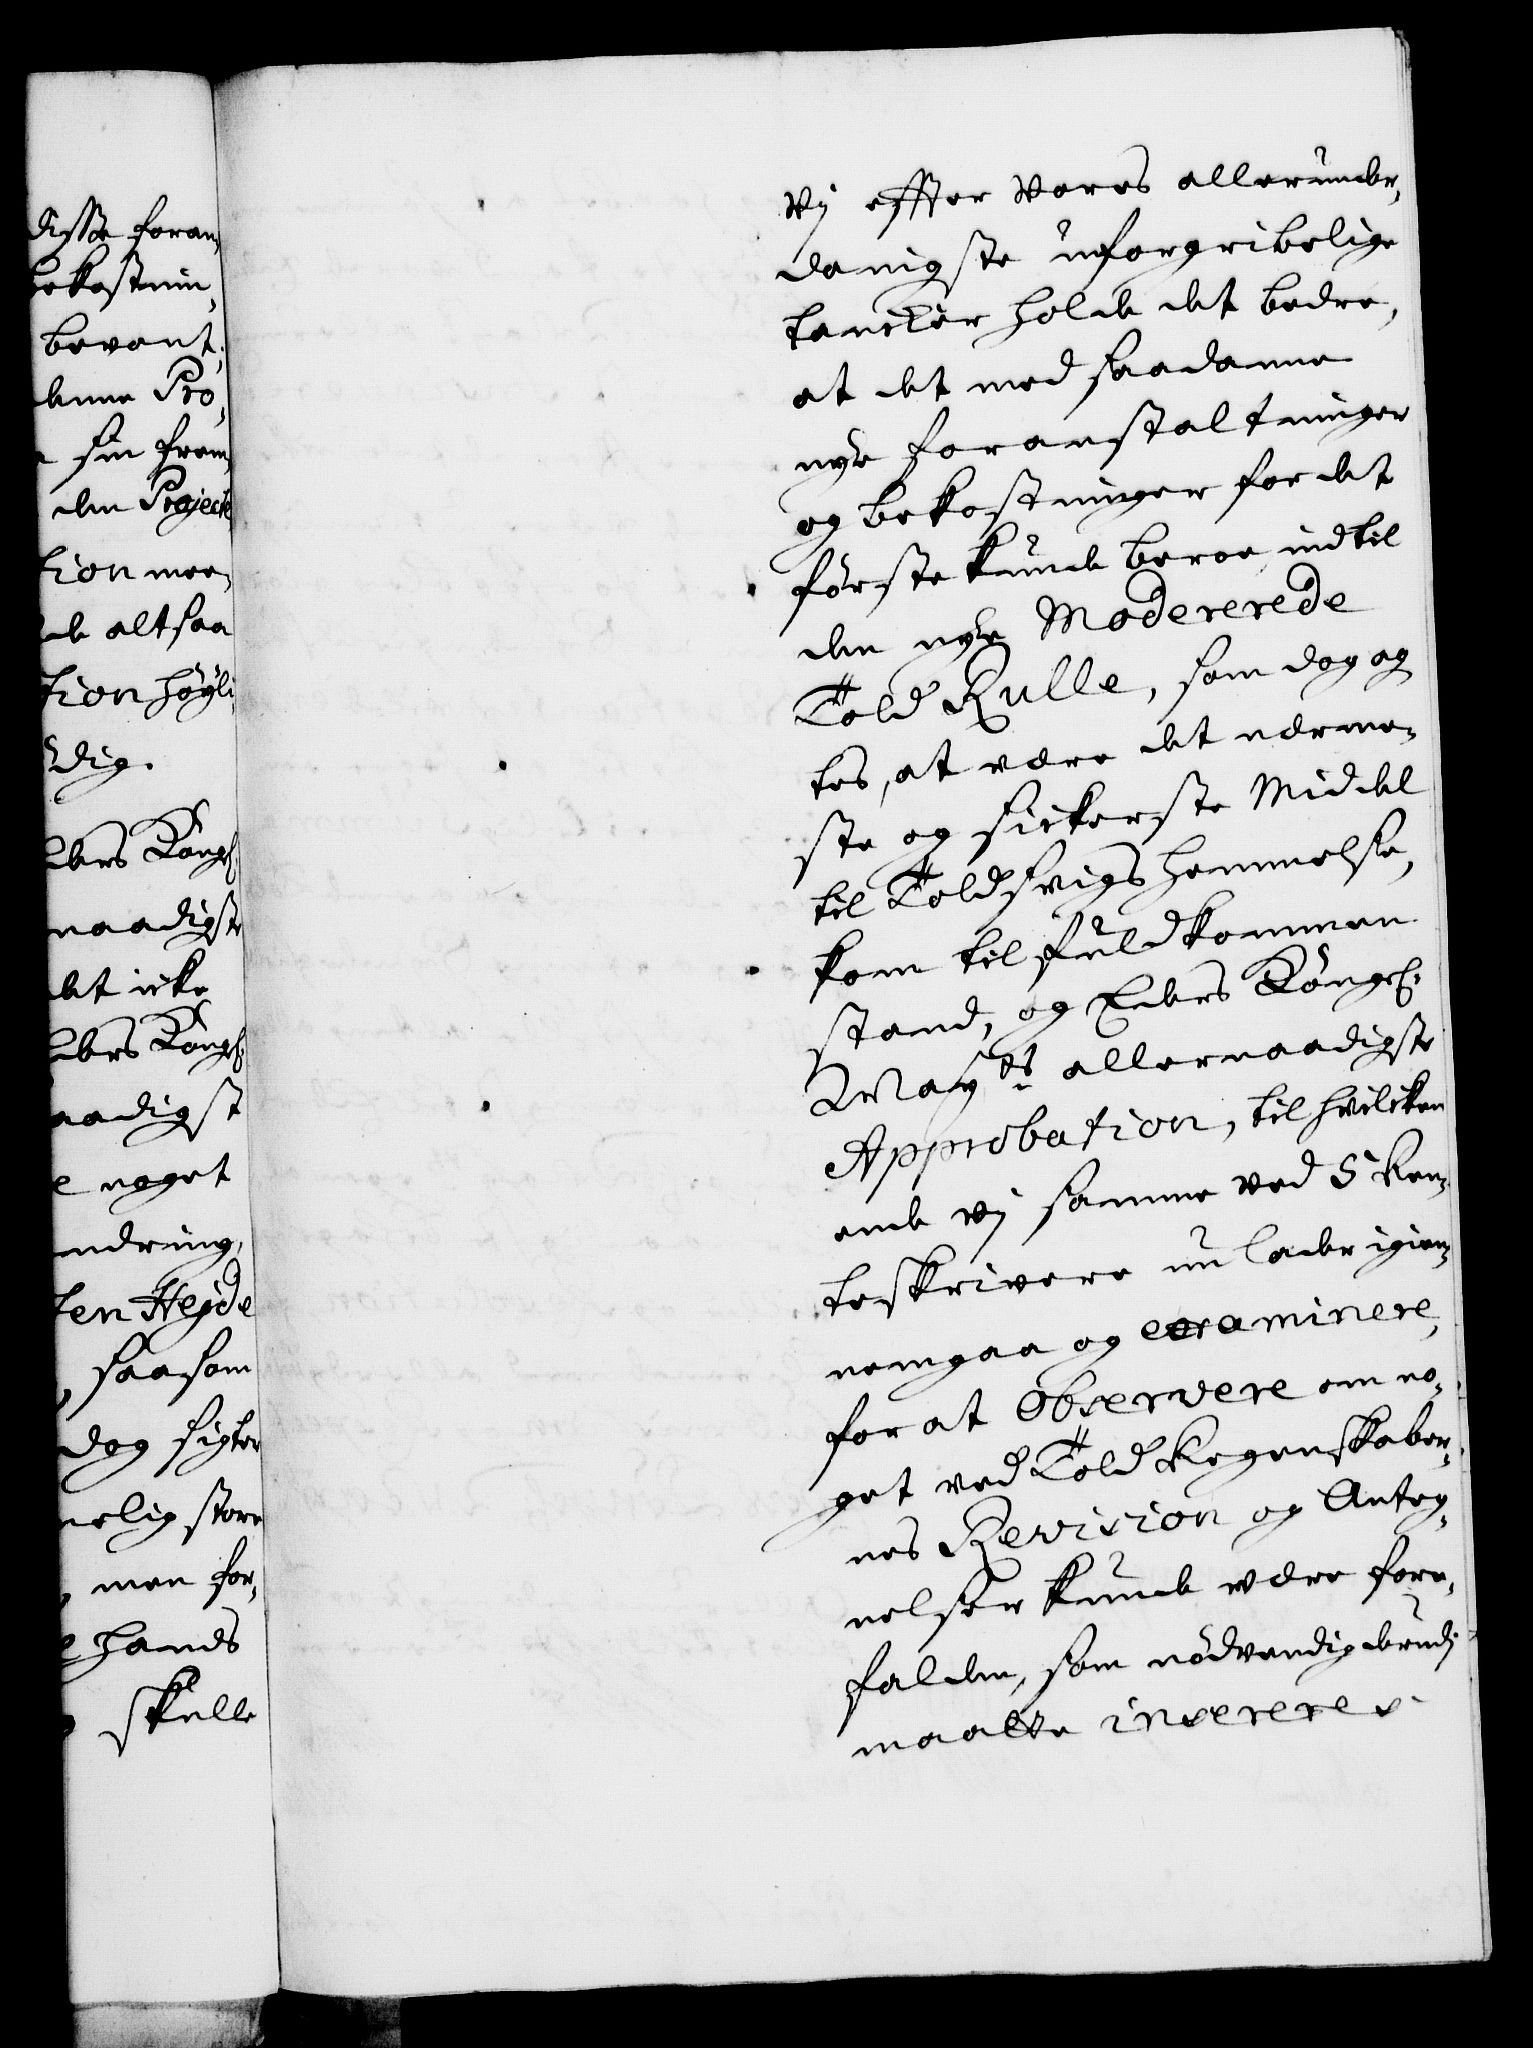 disse foran,
bekostnin,
bevant,
denne Pro,
sin from,
den Projecte
tion mee,
de altsaa
tion høÿli,
dig.
ders Kongl:
naadigste
det icke
ders Kongl:
aadigst
noget
ndring,
ten Hejde
saasom
dog sigter
nelig store
men for,
hands
skulle
Vj effter Vores allerunder,
danigste uforgribelige
tancker holde det bedre,
at det med saadanne
nÿe foranstaltninger
og bekostninger for det
første kunde beroe, indtil
den nÿe Modererede
Told Rulle, som dog ag
tes, at være det nærme,
ste og sickerste Middel
til Toldsvigs hemmelse,
kom til fuldkommen
stand, og Eders Kongl:
Maÿts allernaadigste
Approbation, til hvilcken
ende vj samme ved 5 Ren,
teskrivere nu lader igien,
nemgaa og examinere,
for at observere om no,
get ved Told Regenskaber,
nes Revision og Anteg,
nelser kunde være fore,
falden, som nødvendig derudj
maatte insereres.